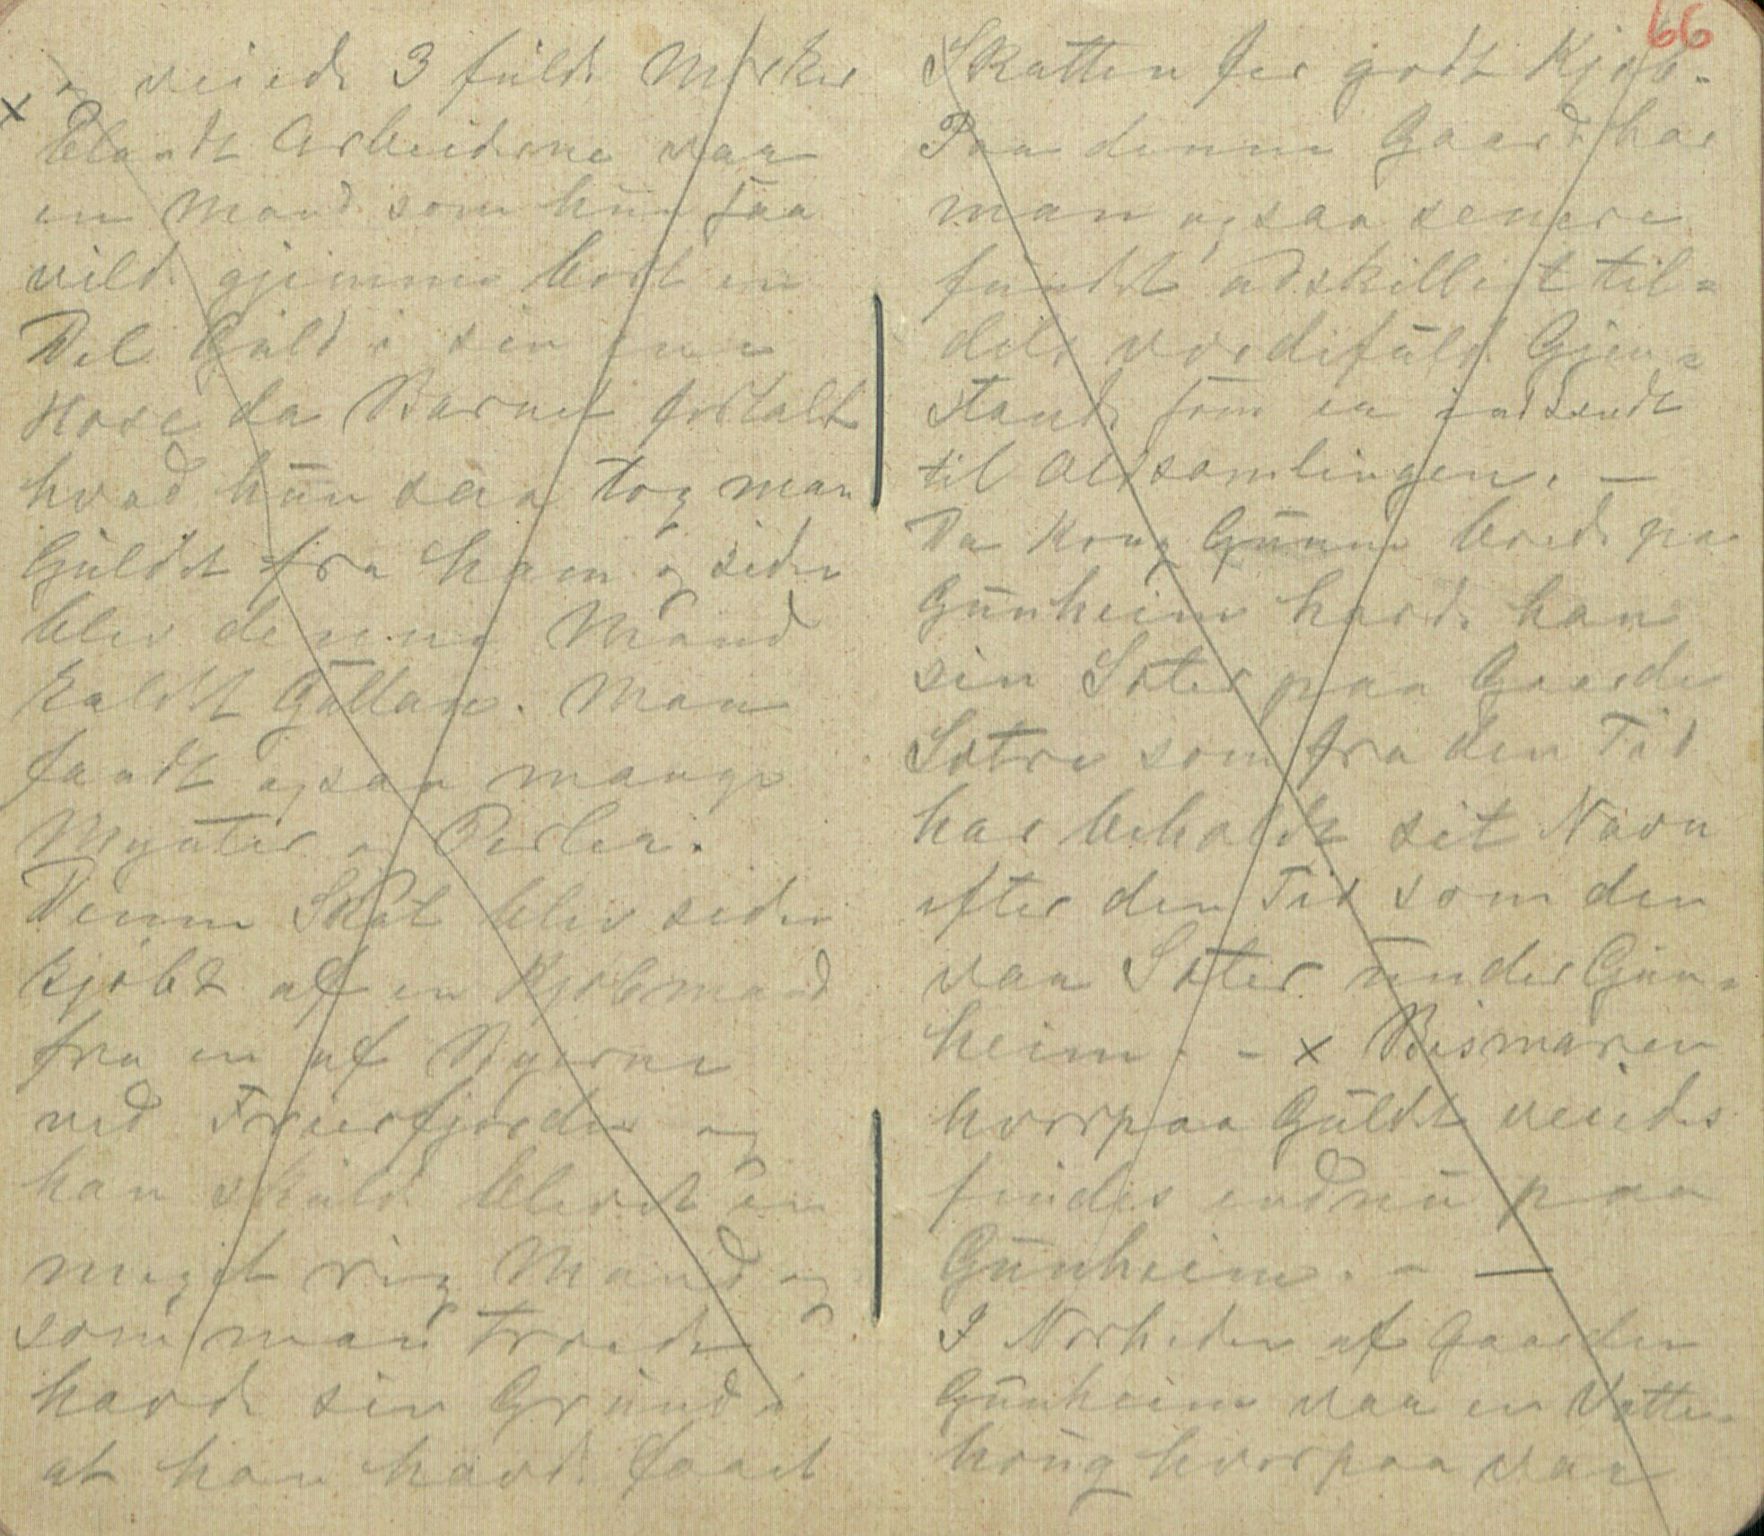 og veiede 3 fulde Mærker
x
blandt Arbeiderne var
en Mand som hun saa
vilde gjemme bort en
Del Guld i sin ene
Hose da Barnet fortalte
hvad hun saa tog man
Guldet fra ham og siden
blev denne Mand
kaldt Gullan. Man
fandt ogsaa mange
Mynter og Perler.
Denne Skat blev siden
kjøbt af en Kjøbmand
fra en af Byerne
ved Friersfjorden og
han skulde blevet en
meget rig Mand og
som man troede
havde sin Grund i
at han havde faaet
66
Skatten for godt Kjøb.
Paa denne Gaard har
man ogsaa senere
fundet adskilligt til=
dels værdifulde Gjen=
stande som er indsendt
til Oldsamlingen. —
Da Kong Gunne boede paa
Gunheim havde han
sin Sæter paa Gaarden
Sætre som fra den Tid
har beholdt sit Navn
efter den Tid som den
var Sæter under Gun=
heim. - x Bismaren
hvorpaa Guldet veiedes
findes endnu paa
Gunheim. - —
I Nærheden af Gaarden
Gunheim var en Vætte=
houg hvorpaa var